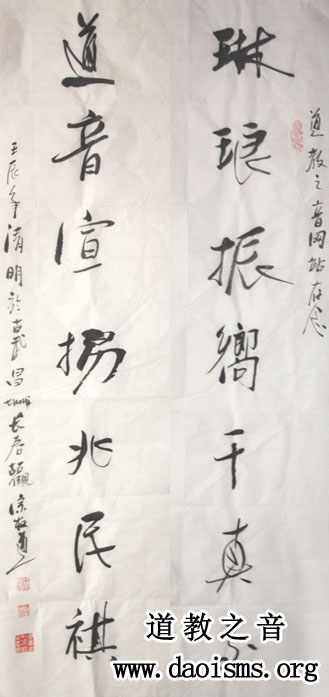 道教之音网站存念
琳琅振嚮千真
道音宣揚兆民祺
壬辰年清明於古武昌長春觀
道教之音
www.daoisms.org